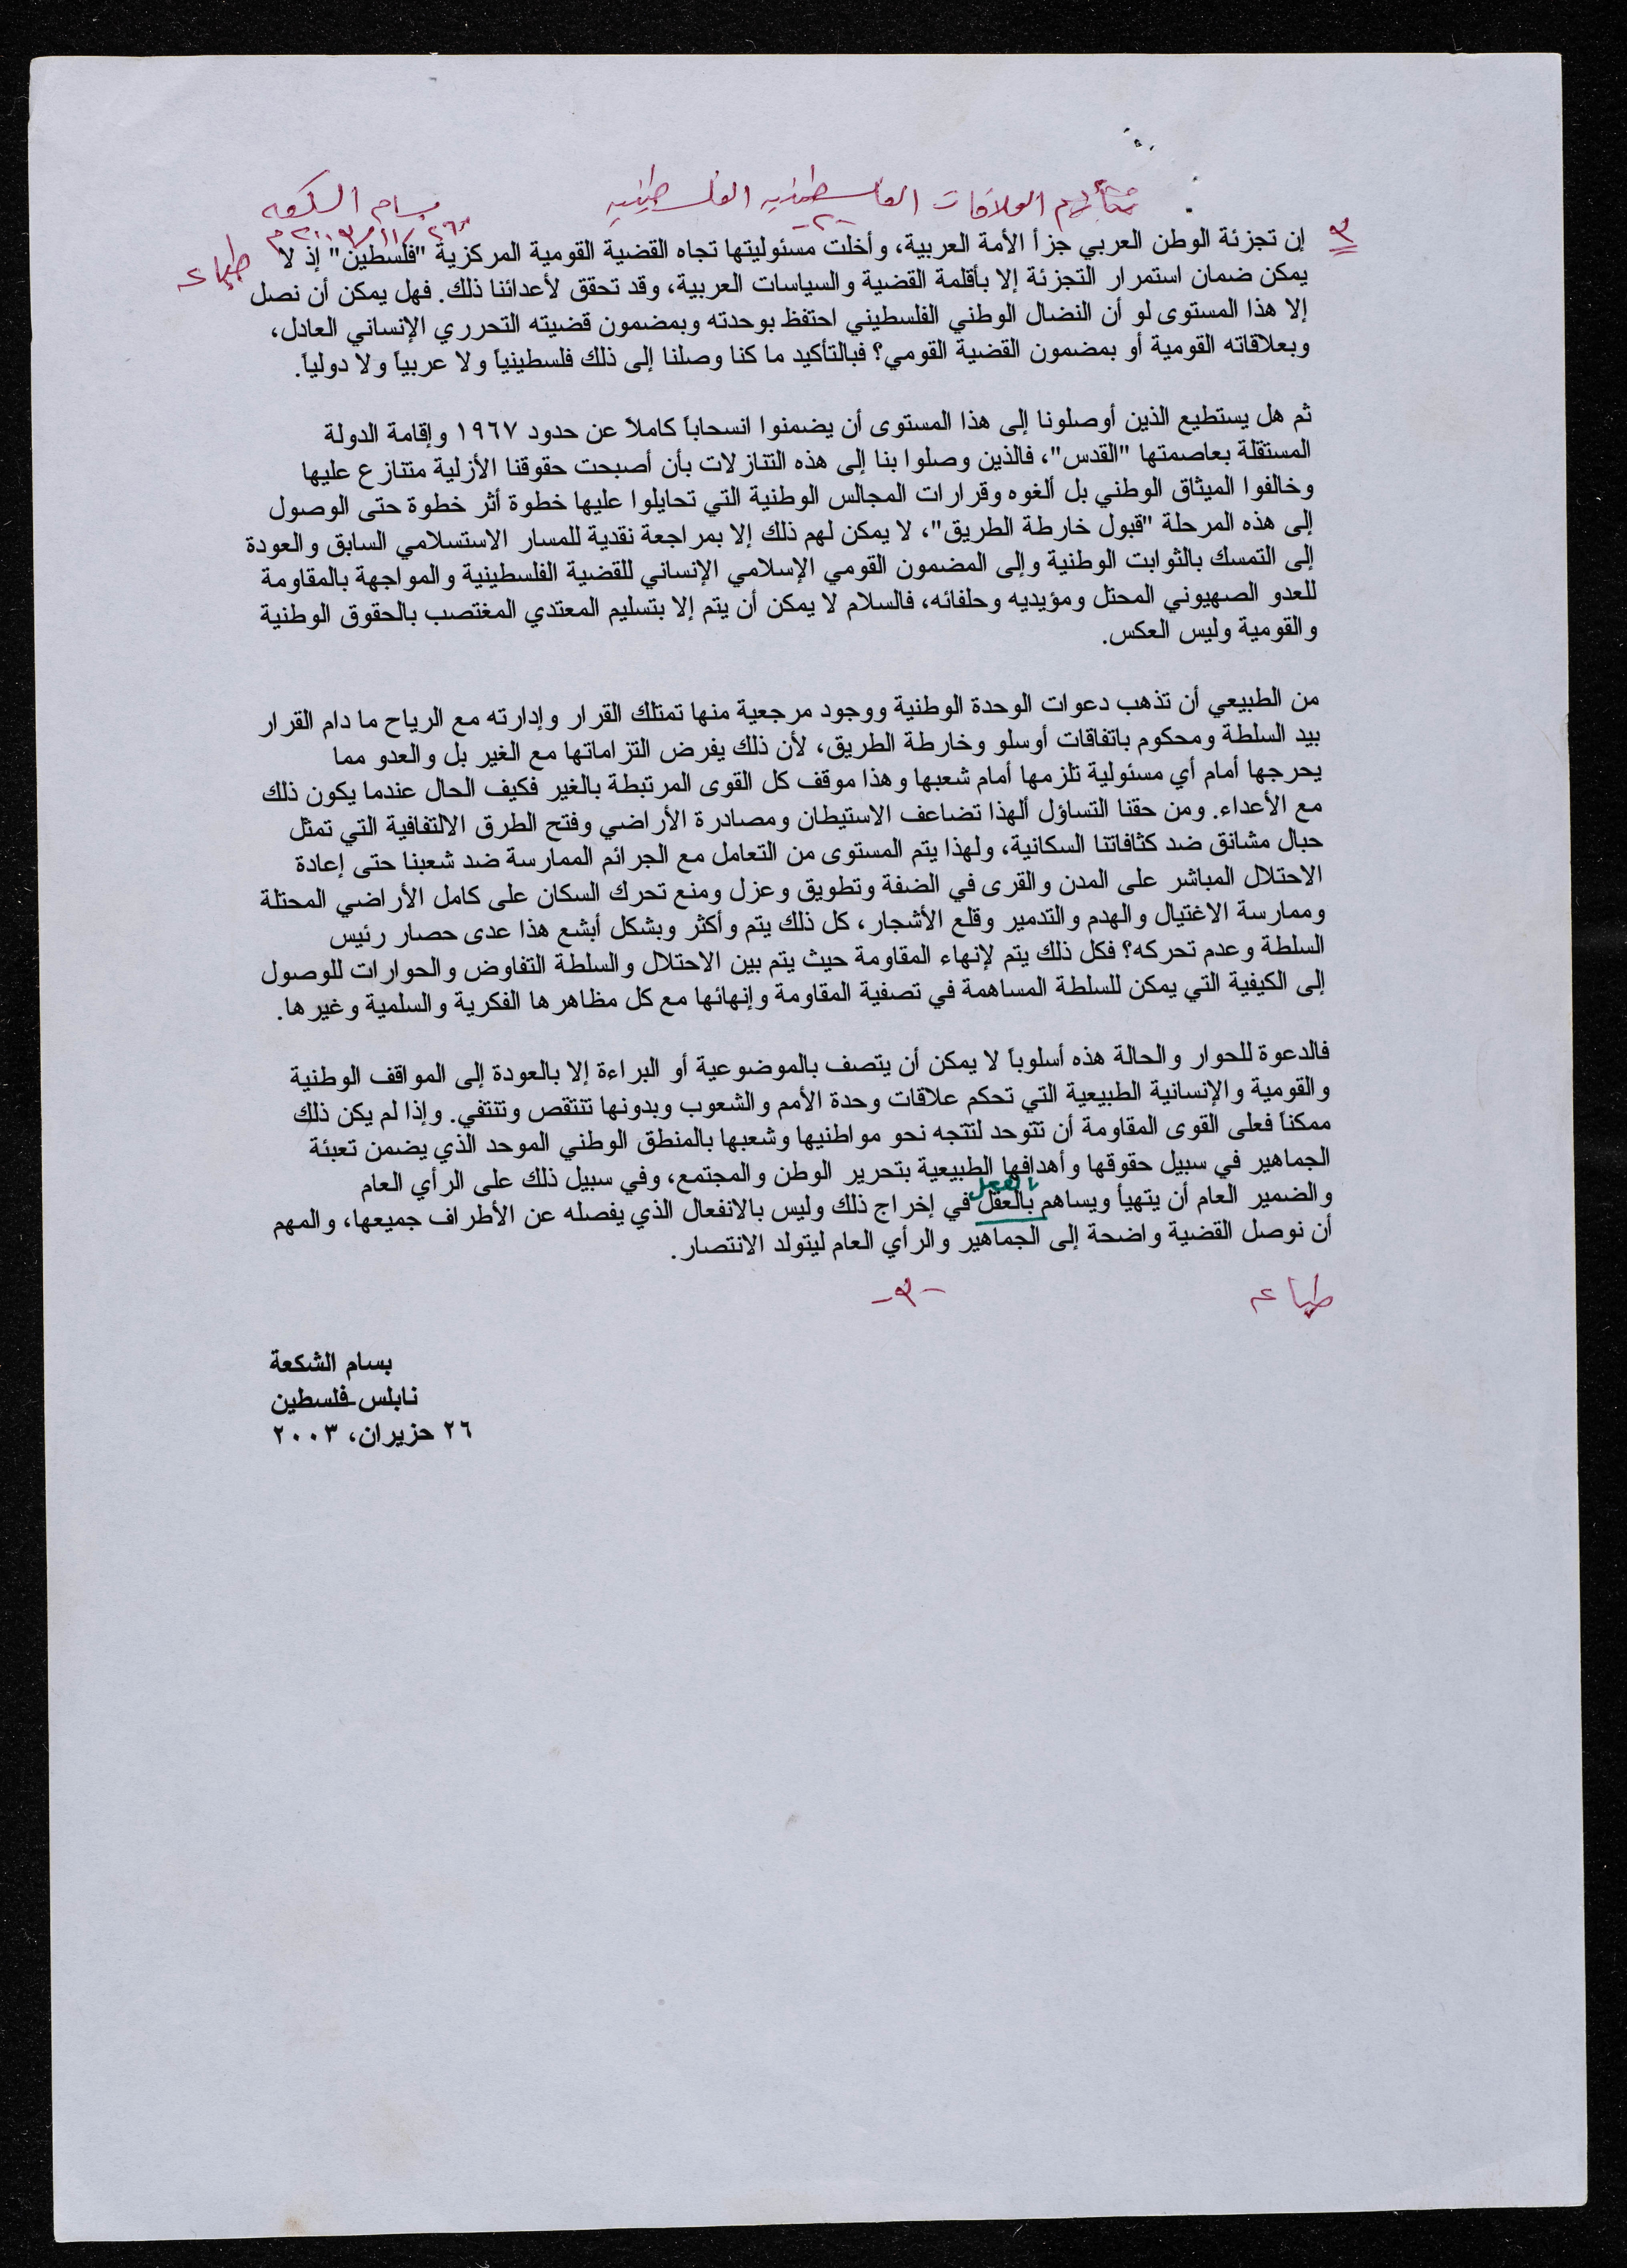 العلاقات الفلسطينيه الفلسطينيه
-٢-
بسام الشكعه
٢٦/١١/٢٠٠٣م
طباعه
٣
إن تجزئة الوطن العربي جزأ الأمة العربية، وأخلت مسئوليتها تجاه القضية القومية المركزية "فلسطين" إذ لا
يمكن ضمان استمرار التجزئة إلا بأقلمة القضية والسياسات العربية، وقد تحقق لأعدائنا ذلك. فهل يمكن أن نصل
إلا هذا المستوى لو أن النضال الوطني الفلسطيني احتفظ بوحدته وبمضمون قضيته التحرري الإنساني العادل،
وبعلاقاته القومية أو بمضمون القضية القومي؟ فبالتأكيد ما كنا وصلنا إلى ذلك فلسطينياً ولا عربياً ولا دولياً.
ثم هل يستطيع الذين أوصلونا إلى هذا المستوى أن يضمنوا انسحاباً كاملاً عن حدود ١٩٦٧ وإقامة الدولة
المستقلة بعاصمتها "القدس"، فالذين وصلوا بنا إلى هذه التنازلات بأن أصبحت حقوقنا الأزلية متنازع عليها
وخالفوا الميثاق الوطني بل ألغوه وقرارات المجالس الوطنية التي تحايلوا عليها خطوة أثر خطوة حتى الوصول
إلى هذه المرحلة "قبول خارطة الطريق"، لا يمكن لهم ذلك إلا بمراجعة نقدية للمسار الاستسلامي السابق والعودة
إلى التمسك بالثوابت الوطنية وإلى المضمون القومي الإسلامي الإنساني للقضية الفلسطينية والمواجهة بالمقاومة
للعدو الصهيوني المحتل ومؤيديه وحلفائه، فالسلام لا يمكن أن يتم إلا بتسليم المعتدي المغتصب بالحقوق الوطنية
والقومية وليس العكس.
من الطبيعي أن تذهب دعوات الوحدة الوطنية ووجود مرجعية منها تمتلك القرار وإدارته مع الرياح ما دام القرار
بيد السلطة ومحكوم باتفاقات أوسلو وخارطة الطريق، لأن ذلك يفرض التزاماتها مع الغير بل والعدو مما
يحرجها أمام أي مسئولية تلزمها أمام شعبها وهذا موقف كل القوى المرتبطة بالغير فكيف الحال عندما يكون ذلك
مع الأعداء. ومن حقنا التساؤل ألهذا تضاعف الاستيطان ومصادرة الأراضي وفتح الطرق الالتفافية التي تمثل
حبال مشانق ضد كثافاتنا السكانية، ولهذا يتم المستوى من التعامل مع الجرائم الممارسة ضد شعبنا حتى إعادة
الاحتلال المباشر على المدن والقرى في الضفة وتطويق وعزل ومنع تحرك السكان على كامل الأراضي المحتلة
وممارسة الاغتيال والهدم والتدمير وقلع الأشجار، كل ذلك يتم وأكثر وبشكل أبشع هذا عدى حصار رئيس
السلطة وعدم تحركه؟ فكل ذلك يتم لإنهاء المقاومة حيث يتم بين الاحتلال والسلطة التفاوض والحوارات للوصول
إلى الكيفية التي يمكن للسلطة المساهمة في تصفية المقاومة وإنهائها مع كل مظاهرها الفكرية والسلمية وغيرها.
فالدعوة للحوار والحالة هذه أسلوباً لا يمكن أن يتصف بالموضوعية أو البراءة إلا بالعودة إلى المواقف الوطنية
والقومية والإنسانية الطبيعية التي تحكم علاقات وحدة الأمم والشعوب وبدونها تنتقص وتنتفي. وإذا لم يكن ذلك
ممكناً فعلى القوى المقاومة أن تتوحد لتتجه نحو مواطنيها وشعبها بالمنطق الوطني الموحد الذي يضمن تعبئة
الجماهير في سبيل حقوقها وأهدافها الطبيعية بتحرير الوطن والمجتمع، وفي سبيل ذلك على الرأي العام
بالفعل
والضمير العام أن يتهيأ ويساهم بالعقل في إخراج ذلك وليس بالانفعال الذي يفصله عن الأطراف جميعها، والمهم
أن نوصل القضية واضحة إلى الجماهير والرأي العام ليتولد الانتصار.
طباعه
-٣-
بسام الشكعة
نابلس-فلسطين
٢٦ حزيران، ٢٠٠٣